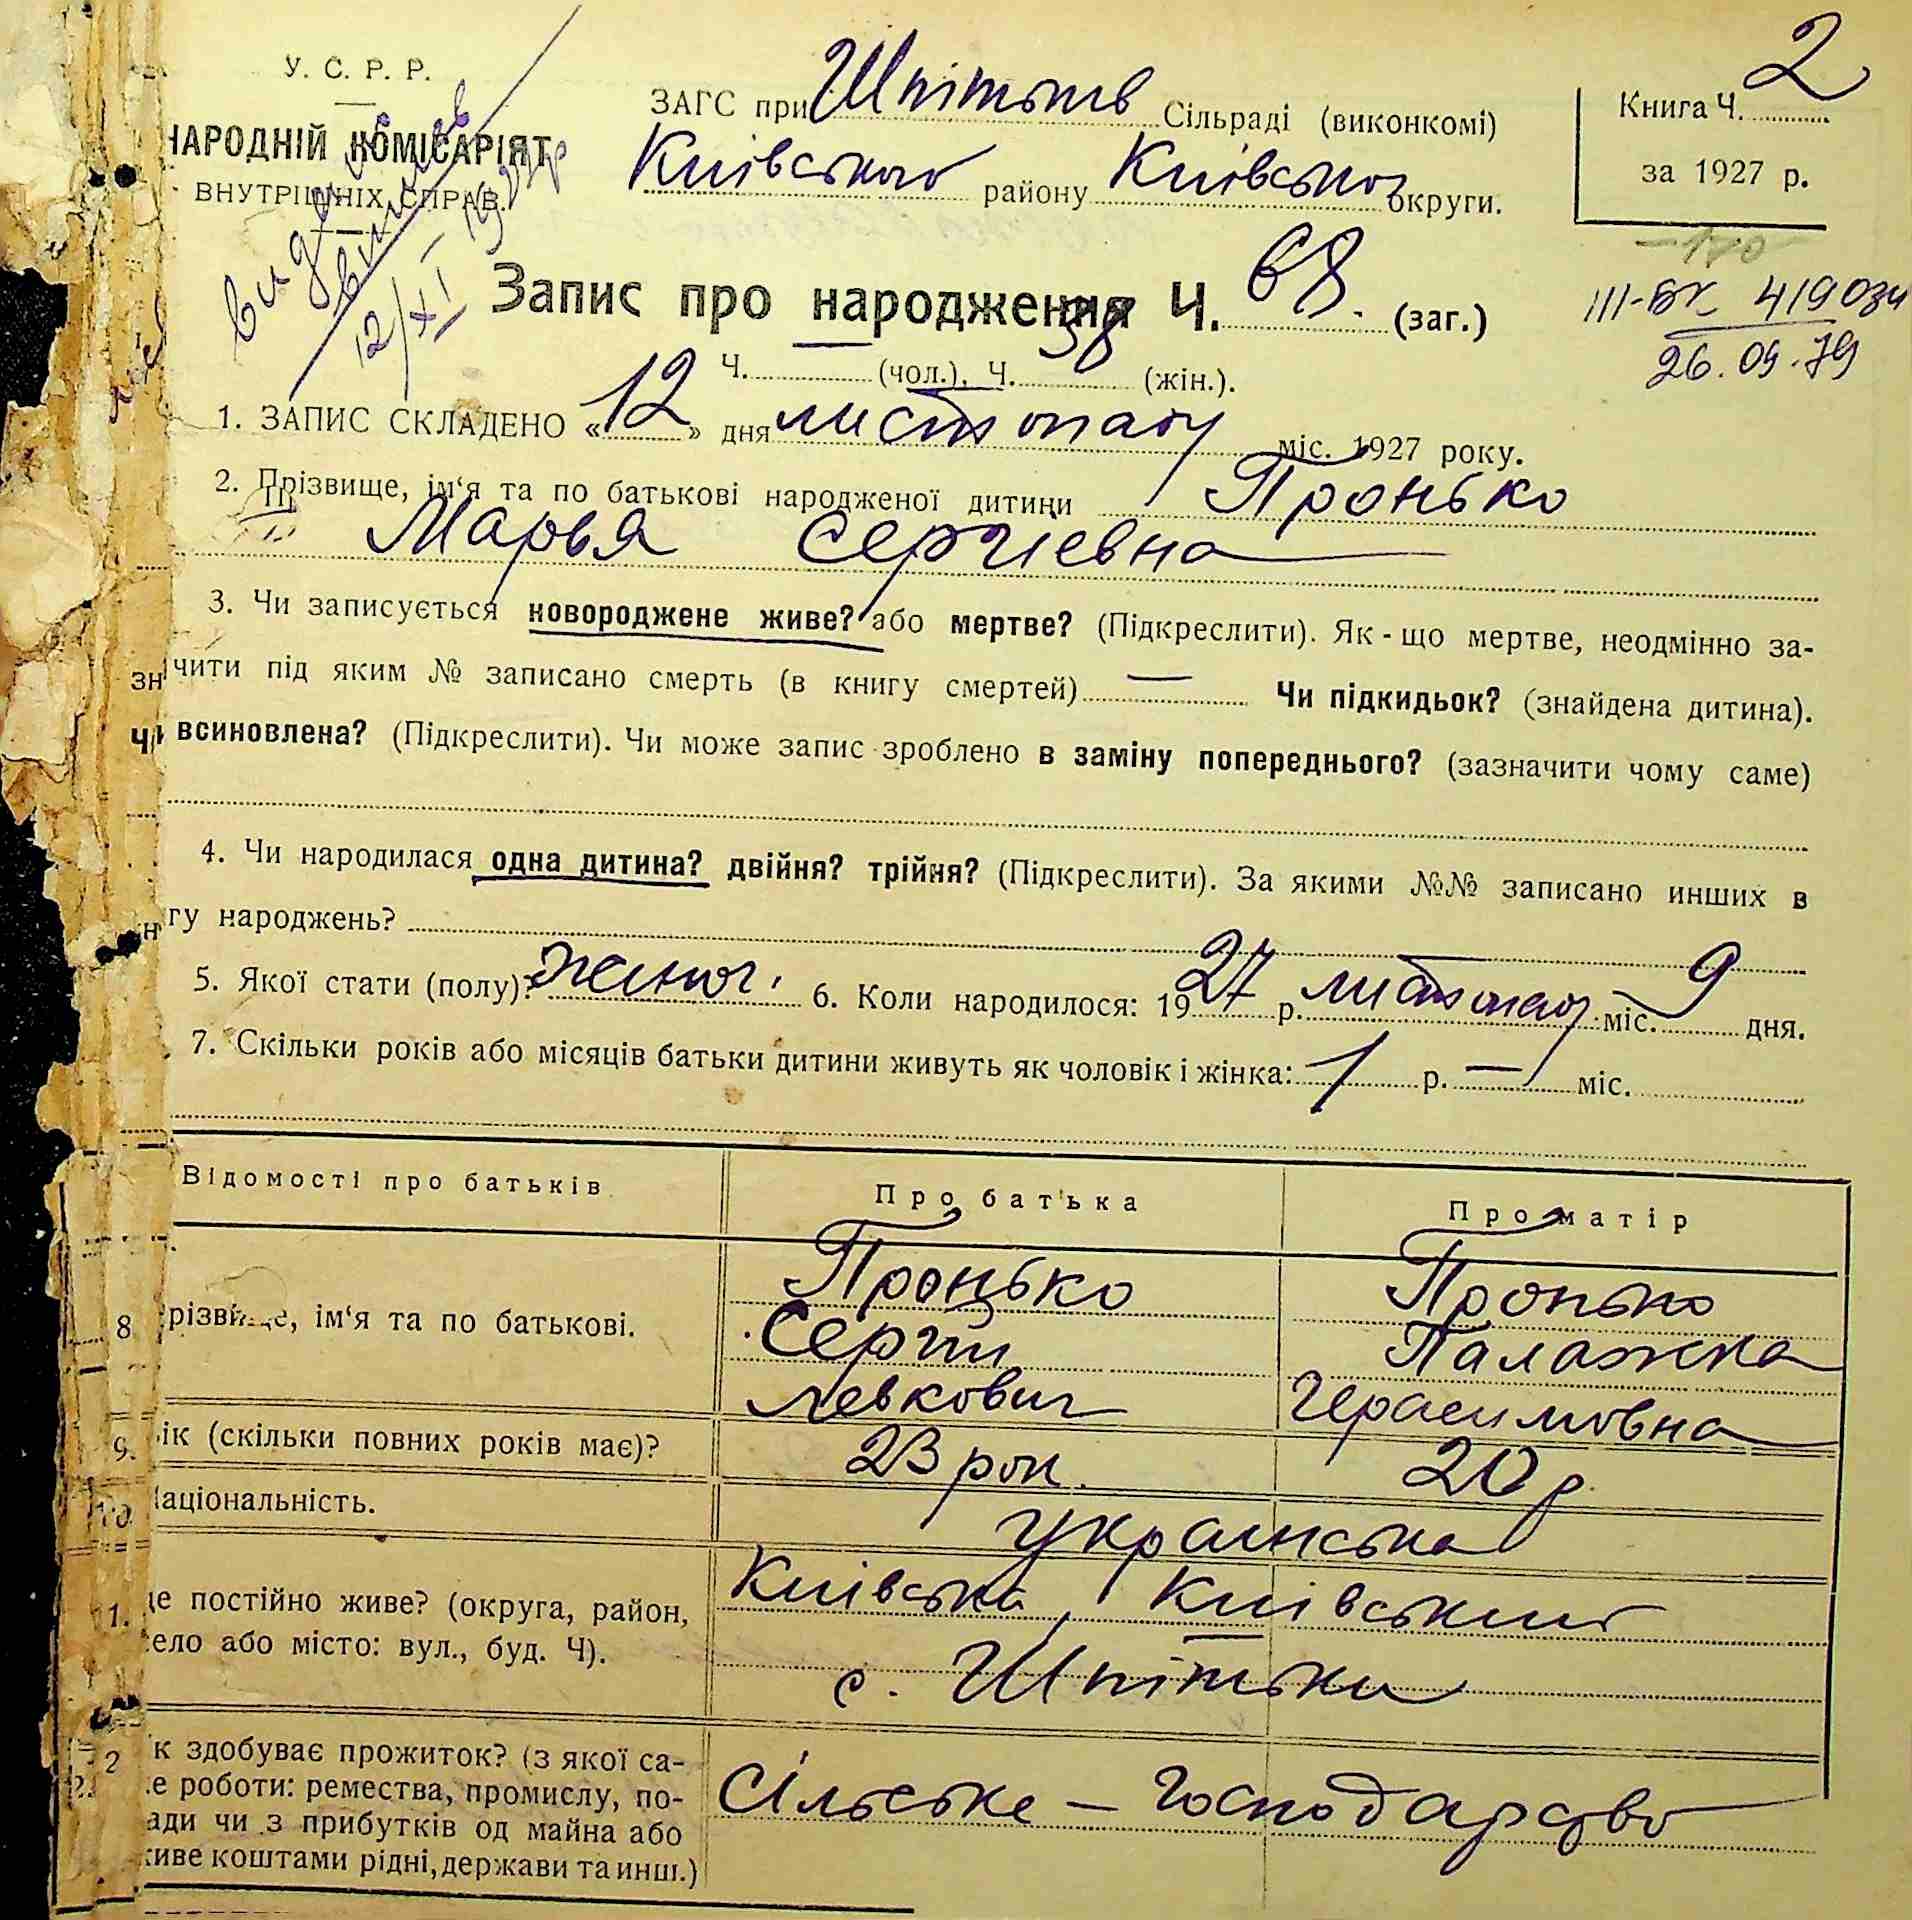 У. С. Р. Р.
НАРОДНІЙ КОМІСАРІЯТ
ВНУТРІШНІХ СПРАВ.
12/XI
ЗАГС при Шпітьків Сільраді (виконкомі)
Київського району Київської округи.
Книга Ч. 2
за 1927 р.
Запис про народження Ч. 68. (заг.)
III-БК 419034
26.09.79
Ч. (чол.), Ч. 38 (жін.).
1. ЗАПИС СКЛАДЕНО «12» дня листопаду міс. 1927 року.
2. Прізвище, ім‘я та по батькові народженої дитини Пронько
Марья Сергіевна
3. Чи записується новороджене живе? або мертве? (Підкреслити). Як - що мертве, неодмінно за-
значити під яким № записано смерть (в книгу смертей) — Чи підкидьок? (знайдена дитина).
Чи всиновлена? (Підкреслити). Чи може запис зроблено в заміну попереднього? (зазначити чому саме)
4. Чи народилася одна дитина? двійня? трійня? (Підкреслити). За якими №№ записано инших в
гу народжень?
5. Якої стати (полу)? жіноч. 6. Коли народилося: 1927 р. листопаду міс. 9 дня.
7. Скільки років або місяців батьки дитини живуть як чоловік і жінка: 1 р. — міс.
Відомості про батьків Про батька Про матір
8 різвище, ім‘я та по батькові. Пронько Сергій Левкович Пронько Палажка Герасимовна
9. ік (скільки повних років має)? 23 рок. 20 р.
10 аціональність. українська
1. де постійно живе? (округа, район, Київська, Київський
село або місто: вул., буд. Ч). с. Шпітьки
2 к здобуває прожиток? (з якої са-
ме роботи: ремества, промислу, по- Сільське — господарство
ади чи з прибутків од майна або
живе коштами рідні, держави та инш.)